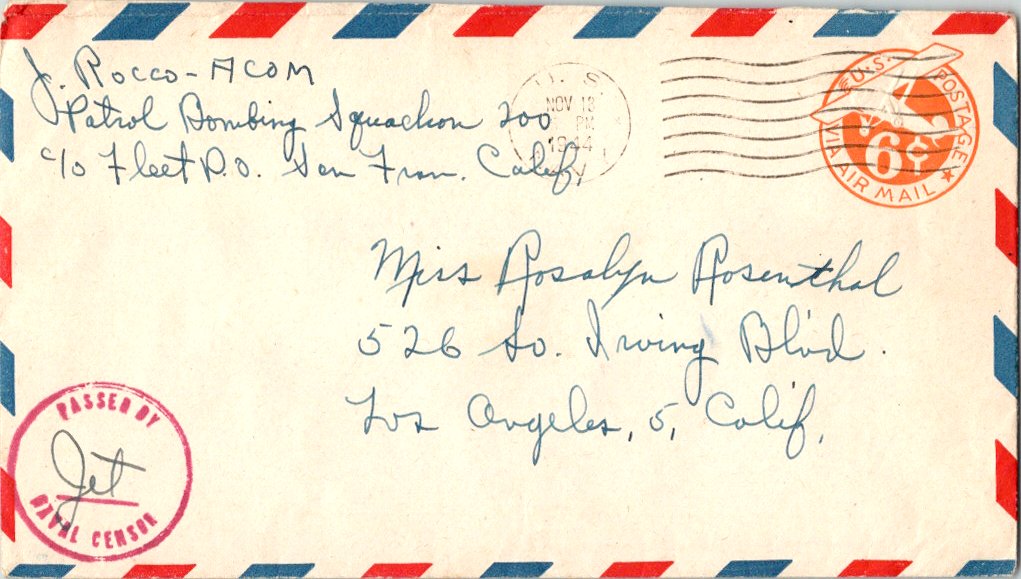 J. Rocco - ACOM
Patrol Bombing Squadron 200
c/o Fleet P.O. San Fran. Calif.
U. S.
NOV 13
PM
1944
U.S. POSTAGE
6¢
VIA AIR MAIL
Miss Rosalyn Rosenthal
526 So. Irving Blvd.
Los Angeles, 5, Calif.
PASSED BY
Jet
NAVAL CENSOR